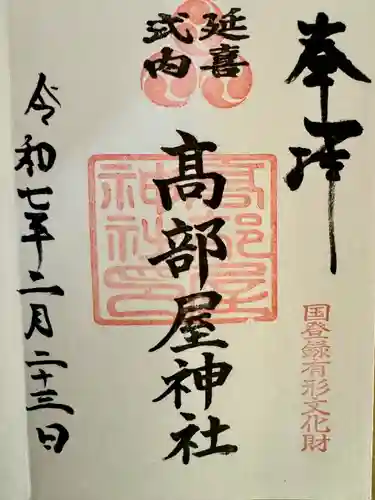 奉拝
国登録有形文化財
延喜
式内
高部屋神社
高部屋
神社印
令和七年二月二十三日